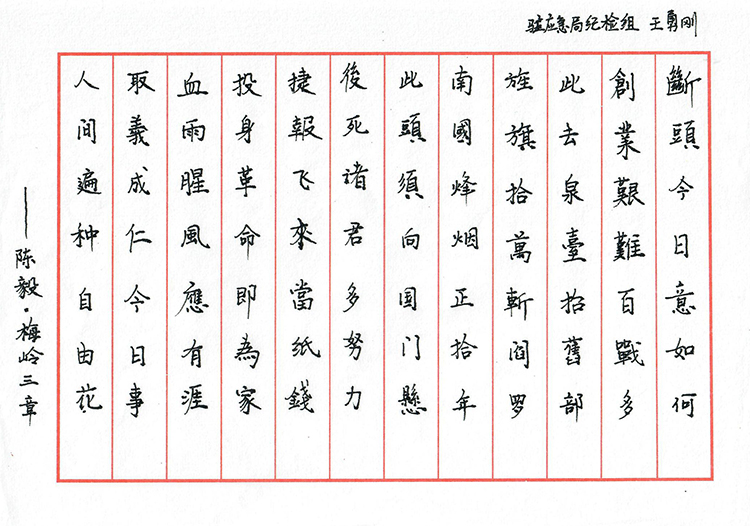 驻应急局纪检组 王勇刚
斷頭今日意如何
創業艱難百戰多
此去泉臺招舊部
旌旗拾萬斬閻罗
南國烽烟正拾年
此頭須向国门懸
後死诸君多努力
捷報飞來當纸錢
投身革命即為家
血雨腥風應有涯
取義成仁今日事
人间遍种自由花
——陈毅·梅岭三章